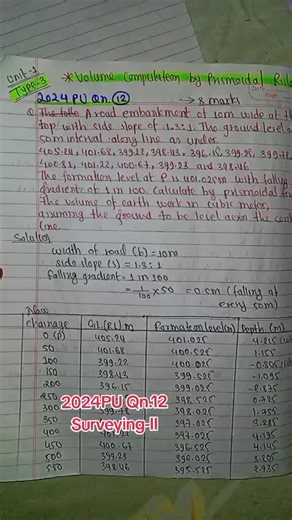 Unit-1
Type-3
*Volume Computation by Prismoidal Rule
2024 PU Qn. 12 → 8 marks
Q. A road embankment of 10m wide at the
top with side slope of 1.3:1. The ground level a
50m interval along line as under
405.24, 401.68, 399.22, 398.43, 396.15,
400.82, 401.22, 400.67, 399.23 and 398.46
The formation level at P is 401.025m with falling
gradient of 1 in 100. Calculate by prismoidal
the volume of earth work in cubic meter,
assuming the ground to be level across the
line.
Solution
width of road (b) = 10m
side slope (s) = 1.3:1
falling gradient = 1 in 100
= 1/100 × 50 = 0.5m (falling at
every 50m)
Now
chainage G.L(R.L) m Formation level(m) Depth (m)
0 (P) 405.24 401.025 4.215
50 401.68 400.525 1.155
100 399.22 400.025
150 398.43 399.525 -1.095
200 396.15 399.025 -2.875
250 398.525 0.725
300 398.025 1.755
350 397.525
400 397.025 4.195
450 400.67 396.525 4.145
500 399.23 396.025 3.205
550 398.46 395.525 2.935
2024PU Qn.12
Surveying-II